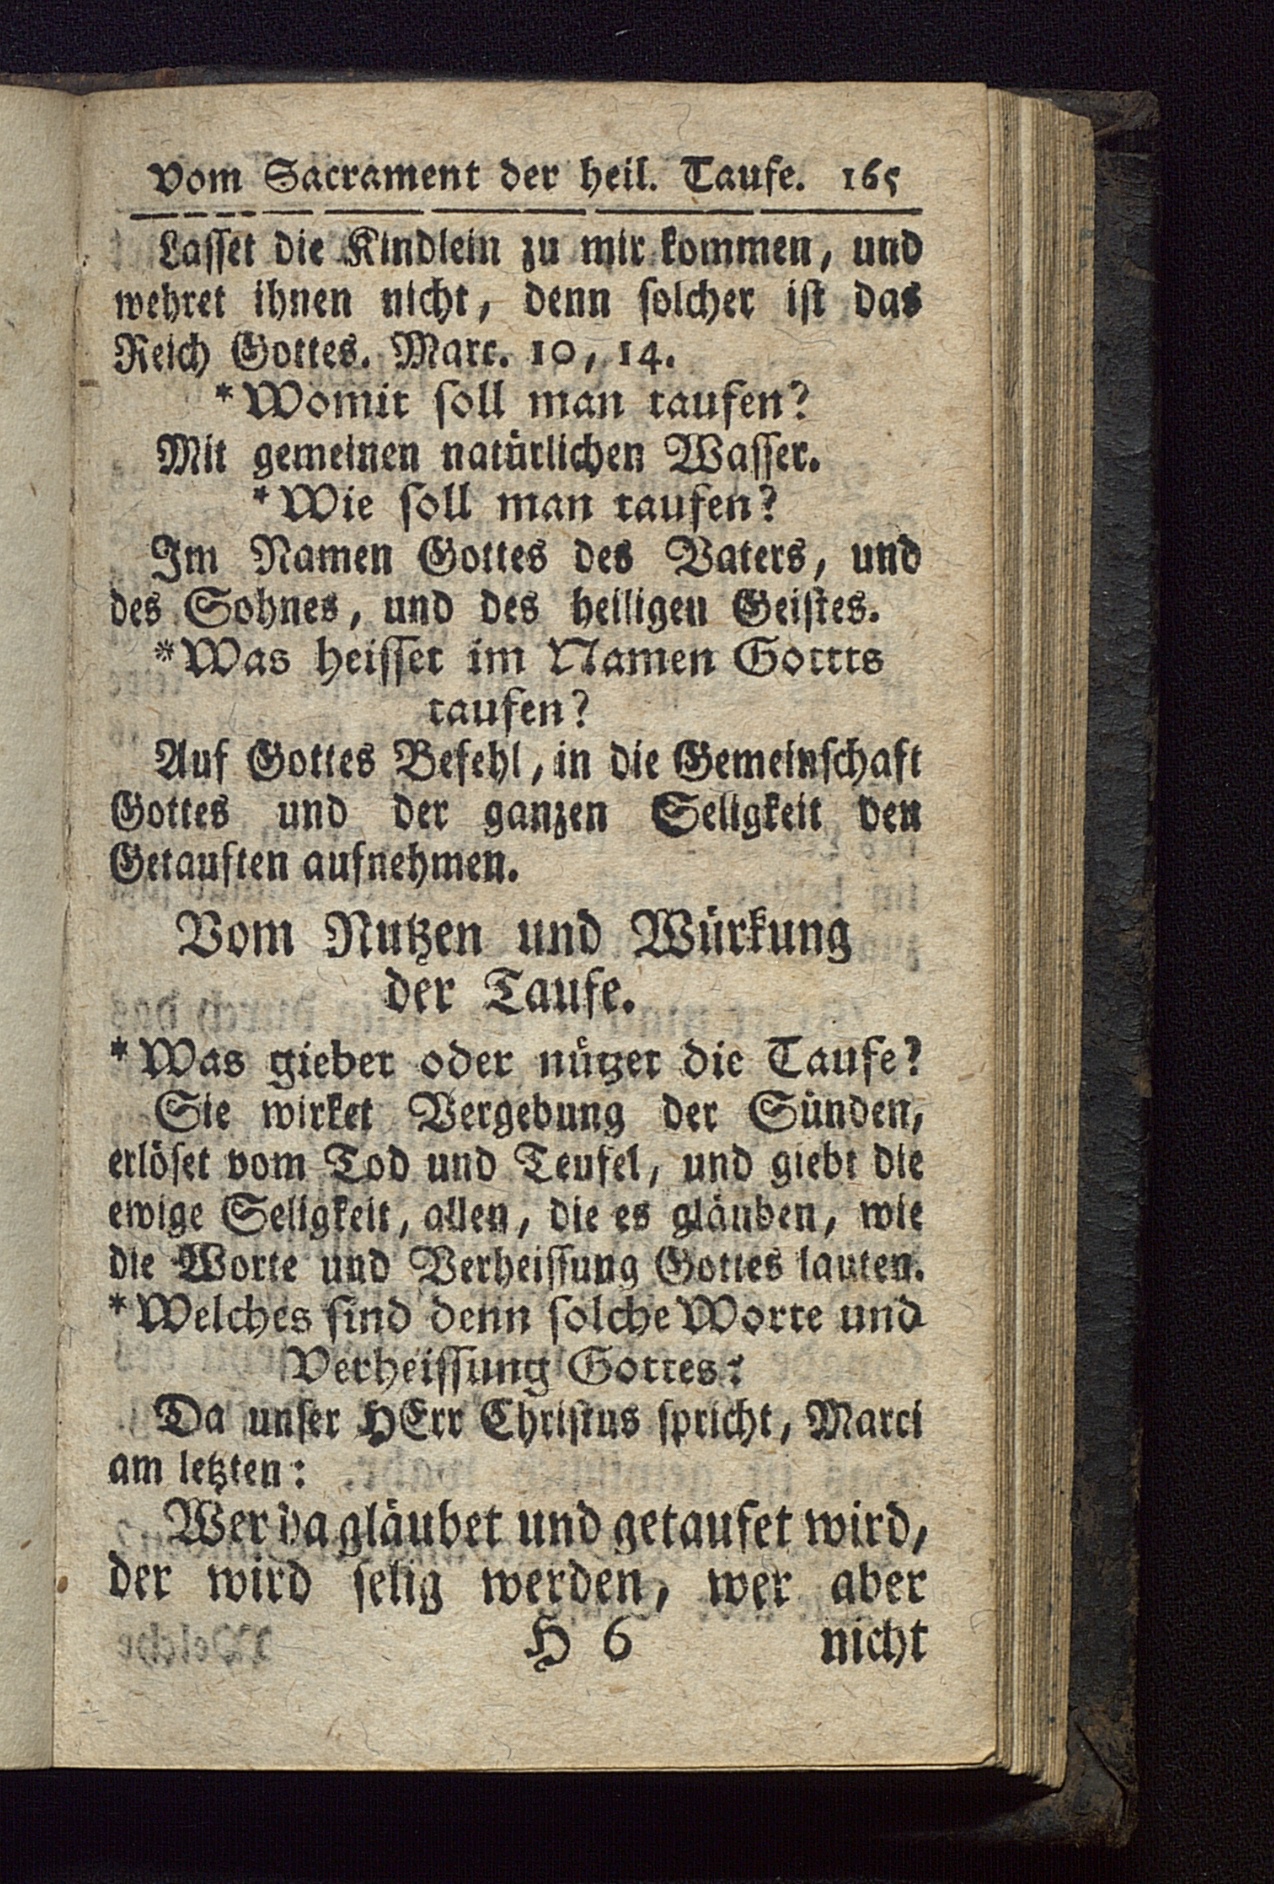 Vom Sacrament der heil. Taufe. 165
Lasset die Kindlein zu mir kommen, und
wehret ihnen nicht, denn solcher ist das
Reich Gottes. Marc. 10, 14.
*Womit soll man taufen?
Mit gemeinen natürlichen Wasser.
*Wie soll man taufen?
Im Namen Gottes des Vaters, und
des Sohnes, und des heiligen Geistes.
*Was heisset im Namen Gottts
taufen?
Auf Gottes Befehl, in die Gemeinschaft
Gottes und der ganzen Seligkeit den
Getauften aufnehmen.
Vom Nutzen und Würkung
der Taufe.
*Was giebet oder nützet die Taufe?
Sie wirket Vergebung der Sünden,
erlöset vom Tod und Teufel, und giebt die
ewige Seligkeit, allen, die es gläuben, wie
die Worte und Verheissung Gottes lauten.
*Welches sind denn solche Worte und
Verheissung Gottes?
Da unser HErr Christus spricht, Marci
am letzten:
Wer da gläubet und getaufet wird,
der wird selig werden, wer aber
H 6 nicht